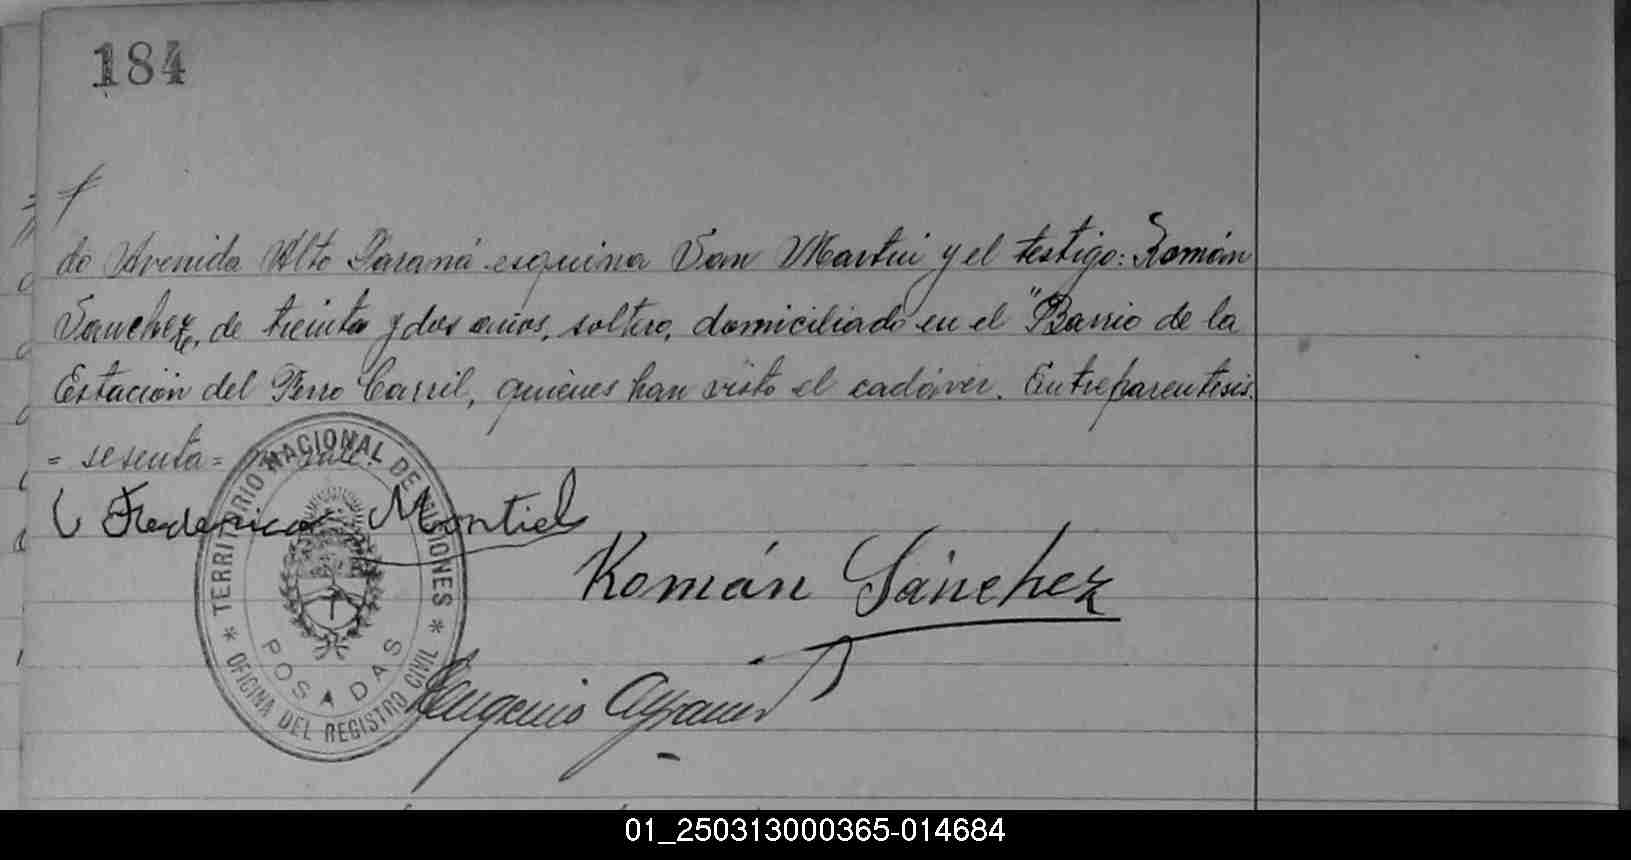 184
do Avenida Alto Paraná esquina San Martin y el testigo: Román
Sanchez, de treinta y dos años, soltero, domiciliado en el "Barrio de la
Estación del Ferro Carril, quiénes han visto el cadáver. Entreparentesis.
= sesenta =
Federico Montiel
Román Sánchez
Eugenio
TERRITORIO NACIONAL DE MISIONES
* OFICINA DEL REGISTRO CIVIL *
POSADAS
01_250313000365-014684